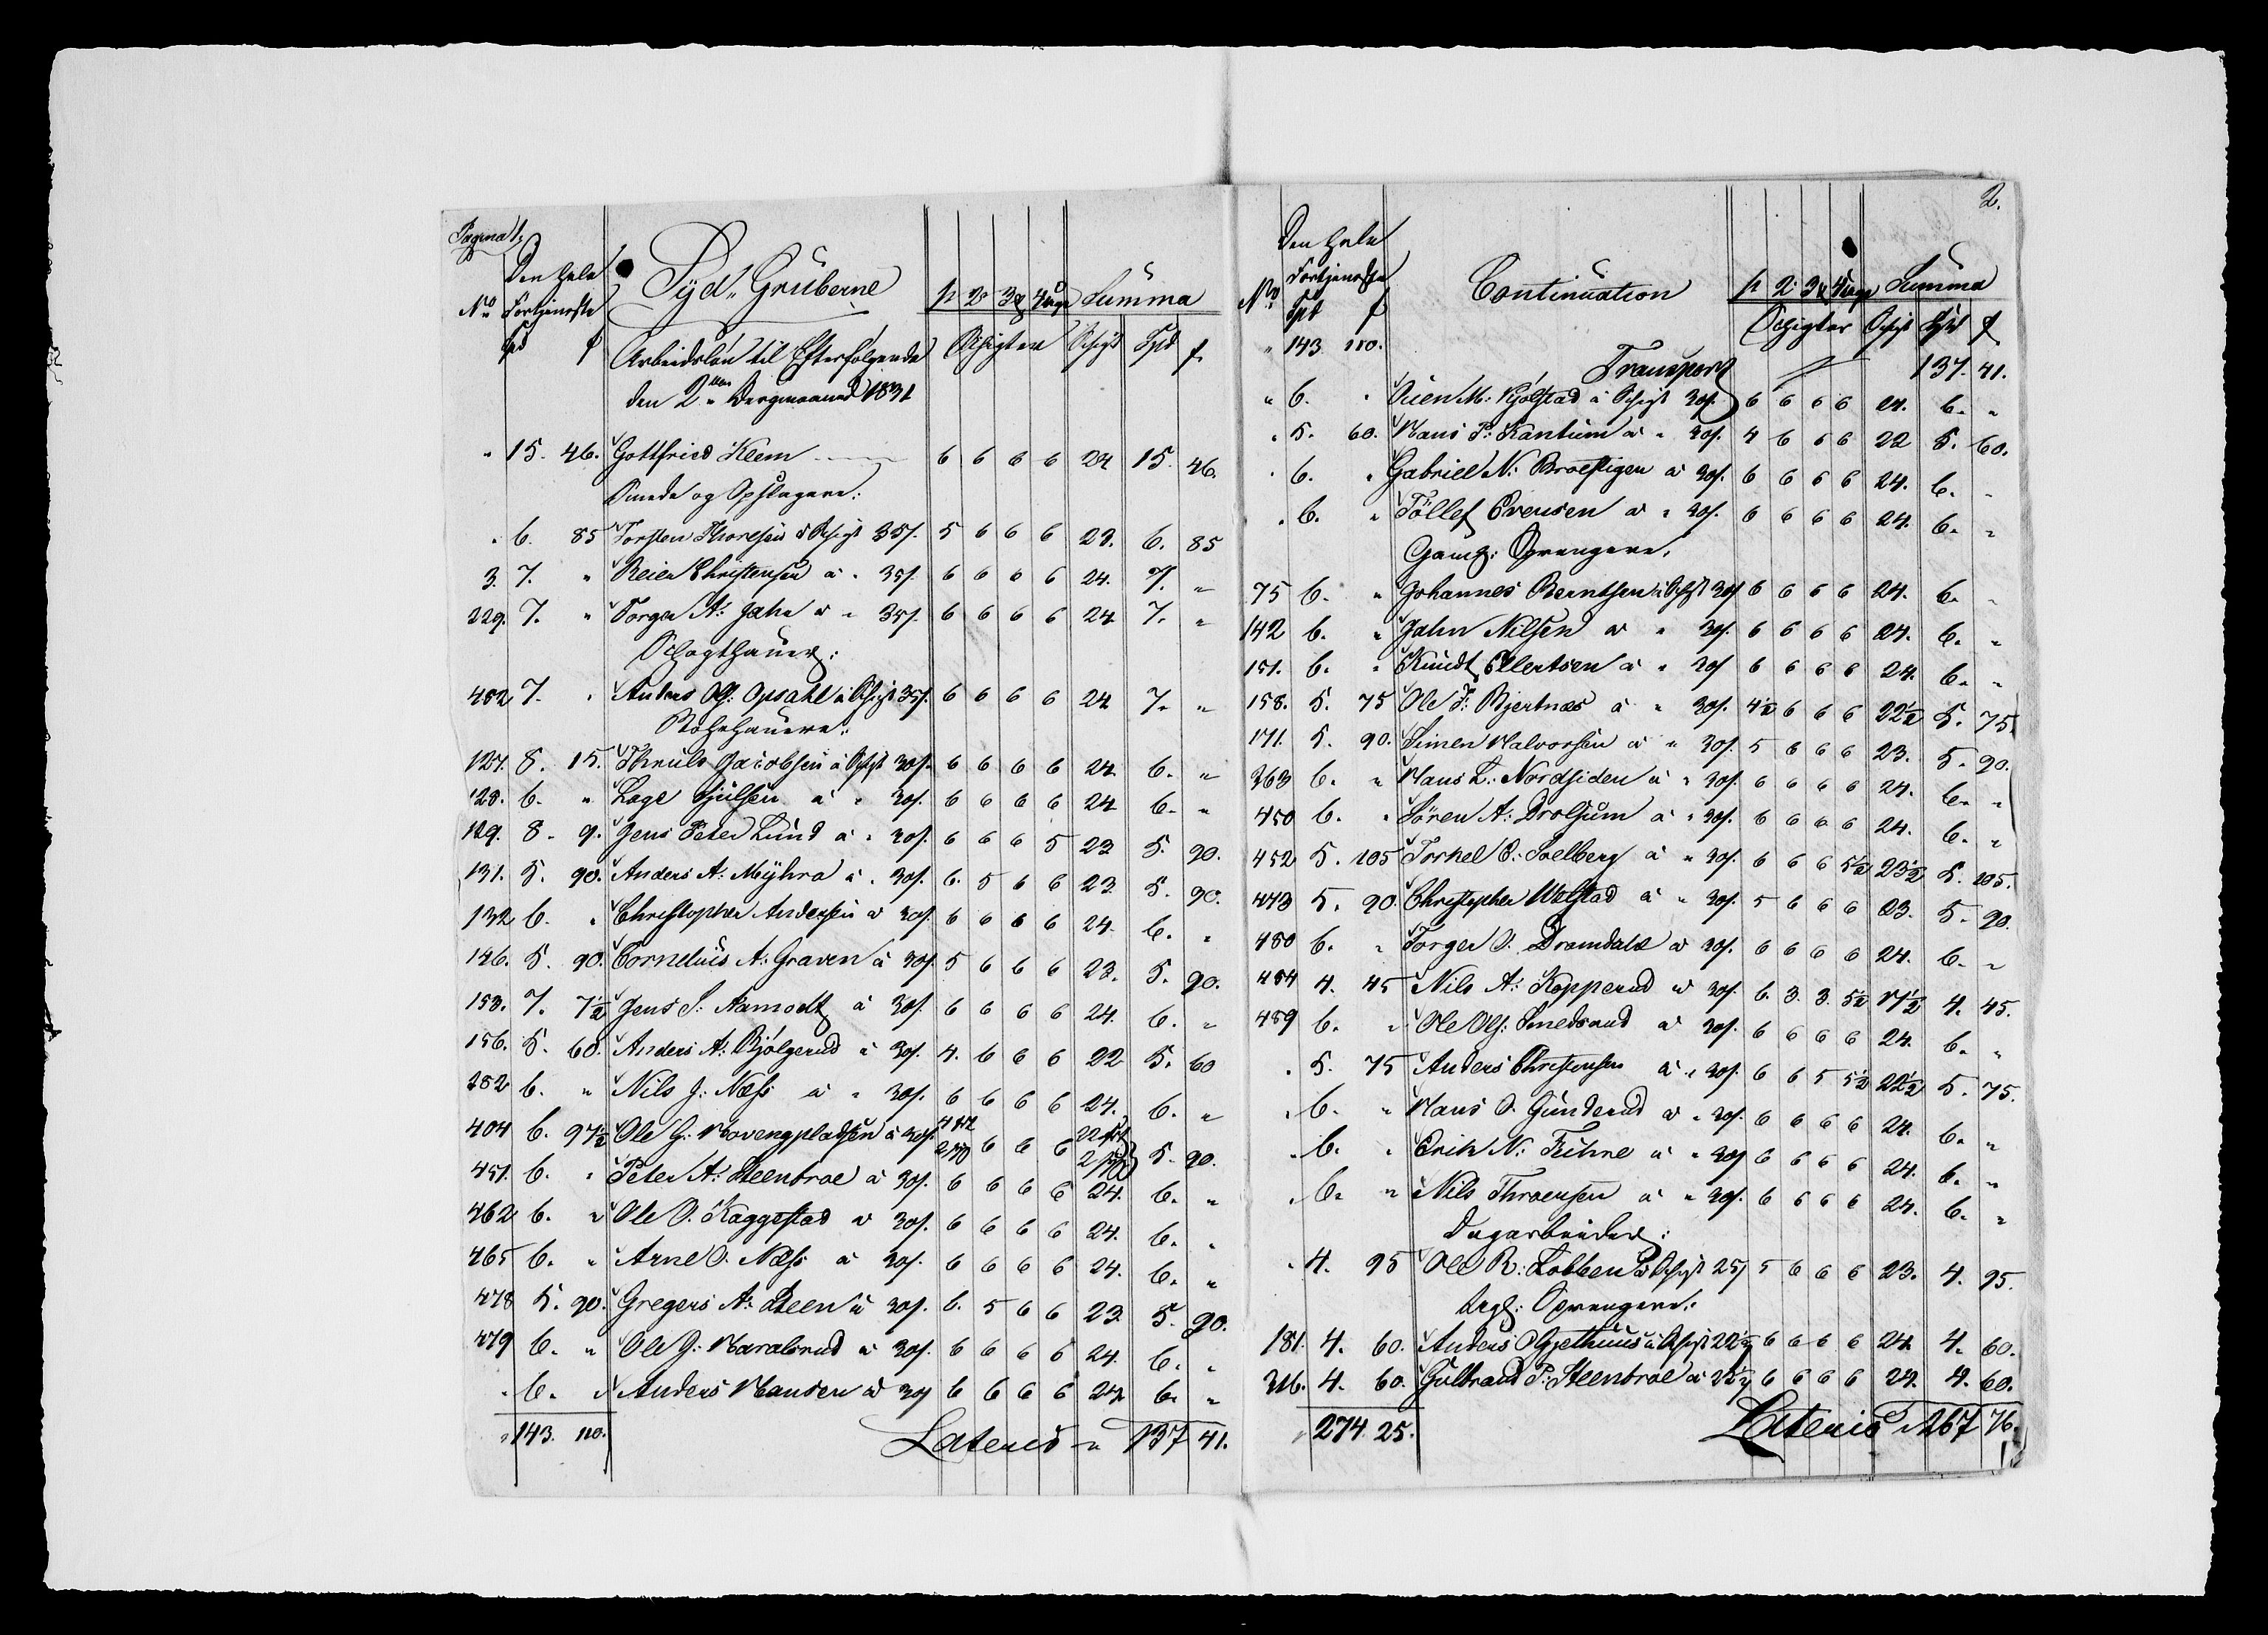 Pagina 1.
Den hele
No Fortjeneste Syd„ Gruberne 1e 2e 3e & 4 Uge Summa
Spd ß Arbeidslön til Efterfølgende Schigter Schigt Spd ß
den 2den Bergmaaned 1831
" 15. 46. Gottfried Kleem 6 6 6 6 24 15. 46.
Smede og Opslagere:
" 6. 85 Torsten Thoresen à Schigt 35ß. 5 6 6 6 23. 6. 85
3. 7. " Reier Christensen à " 35ß. 6 6 6 6 24. 7. "
229. 7. " Torger A: Jahr à " 35ß. 6 6 6 6 24. 7. "
Schagthauer:
482 7. " Anders Ols: Opsahl à Schigt 35ß. 6 6 6 6 24 7. "
127. 8. 15. Thruls Jacobsen à Schigt 30ß. 6 6 6 6 24. 6. "
128. 6. " Lage Hjulsen à " 30ß. 6 6 6 6 24 6. "
129. 8. 9. Jens Peter Lund à " 30ß. 6 6 6 5 23 5. 90.
131. 5. 90. Anders A: Mÿhra à " 30ß. 6. 5 6 6 23. 5. 90.
132 6. " Christopher Andersen à 30ß. 6 6 6 6 24. 6. "
146. 5. 90. Cornelius A: Graven à 30ß. 5 6 6 6 23. 5. 90.
153. 7. 7½ Jens S: Aamodt à 30ß. 6 6 6 6 24. 6. "
156. 5. 60. Anders A: Bjölgerud à 30ß. 4. 6 6 6 22 5. 60
282 6. " Nils J: Næss à " 30ß. 6 6 6 6 24. 6. "
404 6. 97½ Ole G: Hovengpladsen à 30ß. 6 6 6 5. 90.
451. 6. " Peter A: Steenbroe à 30ß. 6 6 6 6 24. 6. "
462 6. " Ole O. Kaggestad à 30ß. 6 6 6 6 24. 6. "
465 6. " Arne O. Næss à 30ß. 6 6 6 6 24. 6. "
478 5. 90. Gregers A: Steen à 30ß. 6. 5 6 6 23 5. 90.
479 6. " Ole J: Haralsrud à 30ß. 6 6 6 6 24. 6. "
" 6. " Anders Hansen à 30ß 6 6 6 6 24. 6. "
" 143. 110. Lateris " 137 41.
2.
Den hele
No Fortjeneste Continuation 1e 2e 3e & 4 Uge Summa
Spd ß Schigter Schigt Spd ß
" 143 110. Transport 137. 41.
" 6. " Reier M: Kjölstad à Schigt 30ß. 6 6 6 6 24. 6. "
" 5. 60. Hans P: Kantum à " 30ß. 4 6 6 6 22 5. 60.
" 6. " Gabriel N: Broestigen à 30ß. 6 6 6 6 24. 6. "
" 6. " Töllef Evensen à " 30ß. 6 6 6 6 24. 6. "
Gang: Sprengere.
75 6. " Johannes Berntsen à Schigt 30ß 6 6 6 6 24. 6. "
142 6. " Jahn Nilsen à " 30ß. 6 6 6 6 24. 6. "
151. 6. " Knudt Ellertsen à " 30ß 6 6 6 6 24. 6. "
158. 5. 75 Ole J: Bjertnæs à " 30ß. 4½ 6 6 6 22½ 5. 75.
171. 5. 90. Simen Halvorsen à " 30ß. 5 6 6 6 23. 5. 90.
363 6. " Hans L: Nordsiden à " 30ß. 6 6 6 6 24. 6. "
450 6. " Sören A: Drolsum à " 30ß. 6 6 6 6 24. 6. "
452 5. 105 Torkel O: Soelberg à " 30ß. 6 6 6 5½ 23½ 5. 105.
473 5. 90. Christopher Wolstad à " 30ß. 5 6 6 6 23. 5. 90.
480 6. " Torger O. Dramdale à 30ß. 6 6 6 6 24. 6. "
484 4. 45 Nils A: Kopperud à 30ß. 6. 3. 3. 5½ 17½ 4. 45.
489 6. " Ole Ols: Smedsrud à 30ß. 6 6 6 6 24. 6. "
" 5. 75 Anders Christensen à " 30ß. 6 6 5 5½ 22½ 5. 75.
" 6. " Hans O. Gunderud à " 30ß. 6 6 6 6 24. 6. "
" 6. " Erik N: Fuhre à " 30ß 6 6 6 6 24. 6. "
" 6. " Nils Throensen à " 30ß. 6 6 6 6 24. 6. "
Dagarbeider:
" 4. 95 Ole R: Lobben à Schigt 25ß 5 6 6 6 23. 4. 95.
Sprengere:
181. 4. 60. Anders Gjethuus à Schigt 22½ß 6 6 6 6 24. 4. 60.
316. 4. 60. Gulbrand P: Steenbroe à 22½ß 6 6 6 6 24. 4. 60.
" 274. 25. Lateris " 267 76.